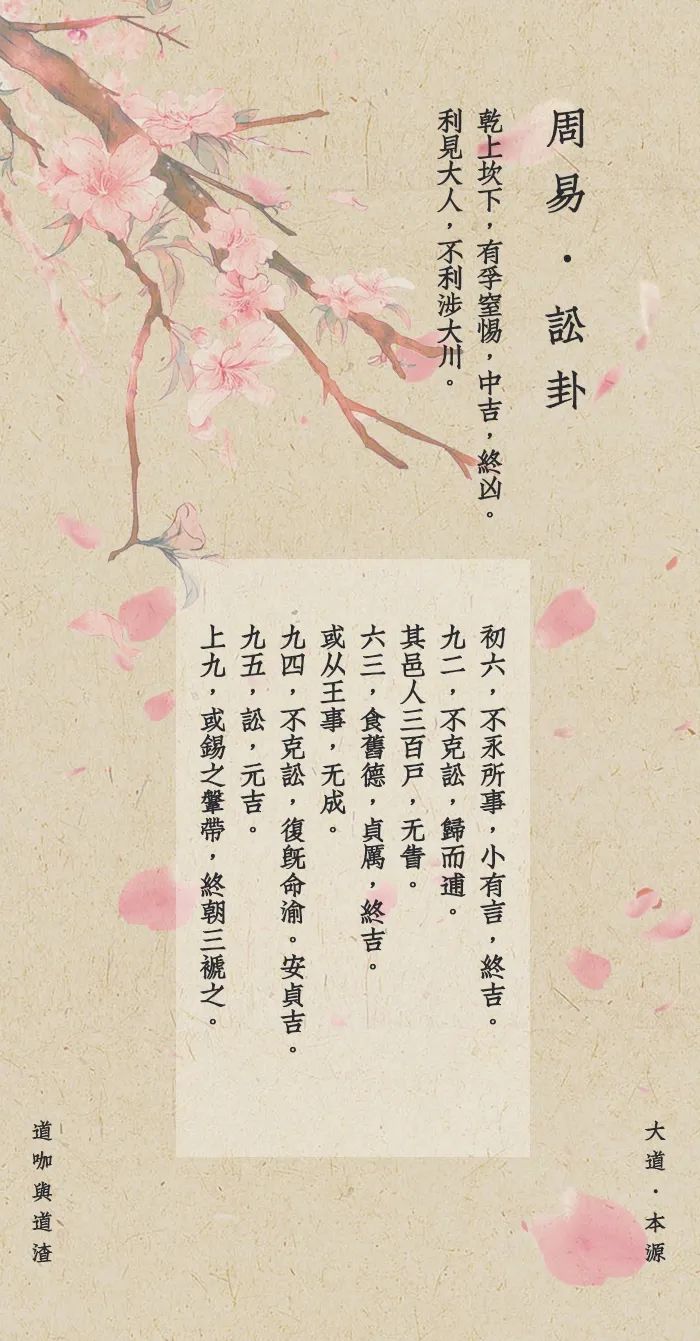 周易·訟卦
乾上坎下，有孚窒惕，中吉，終凶。
利見大人，不利涉大川。
初六，不永所事，小有言，終吉。
九二，不克訟，歸而逋。
其邑人三百戸，无眚。
六三，食舊德，貞厲，終吉。
或从王事，无成。
九四，不克訟，復旣命渝。安貞吉。
九五，訟，元吉。
上九，或錫之鞶帶，終朝三褫之。
大道·本源
道咖與道渣